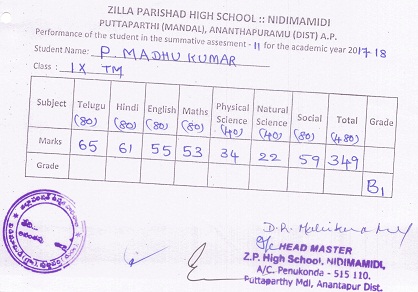 ZILLA PARISHAD HIGH SCHOOL :: NIDIMAMIDI
PUTTAPARTHI (MANDAL), ANANTHAPURAMU (DIST) A.P.
Performance of the student in the summative assesment - II for the academic year 2017-18
Student Name: P. MADHU KUMAR
Class : IX TM
Subject Telugu (80) Hindi (80) English (80) Maths (80) Physical Science (40) Natural Science (40) Social (80) Total (480) Grade
Marks 65 61 55 53 34 22 59 349
Grade B1
HEAD MASTER
Z.P. High School, NIDIMAMIDI,
A/C. Penukonda - 515 110.
Puttaparthy Mdl, Anantapur Dist.